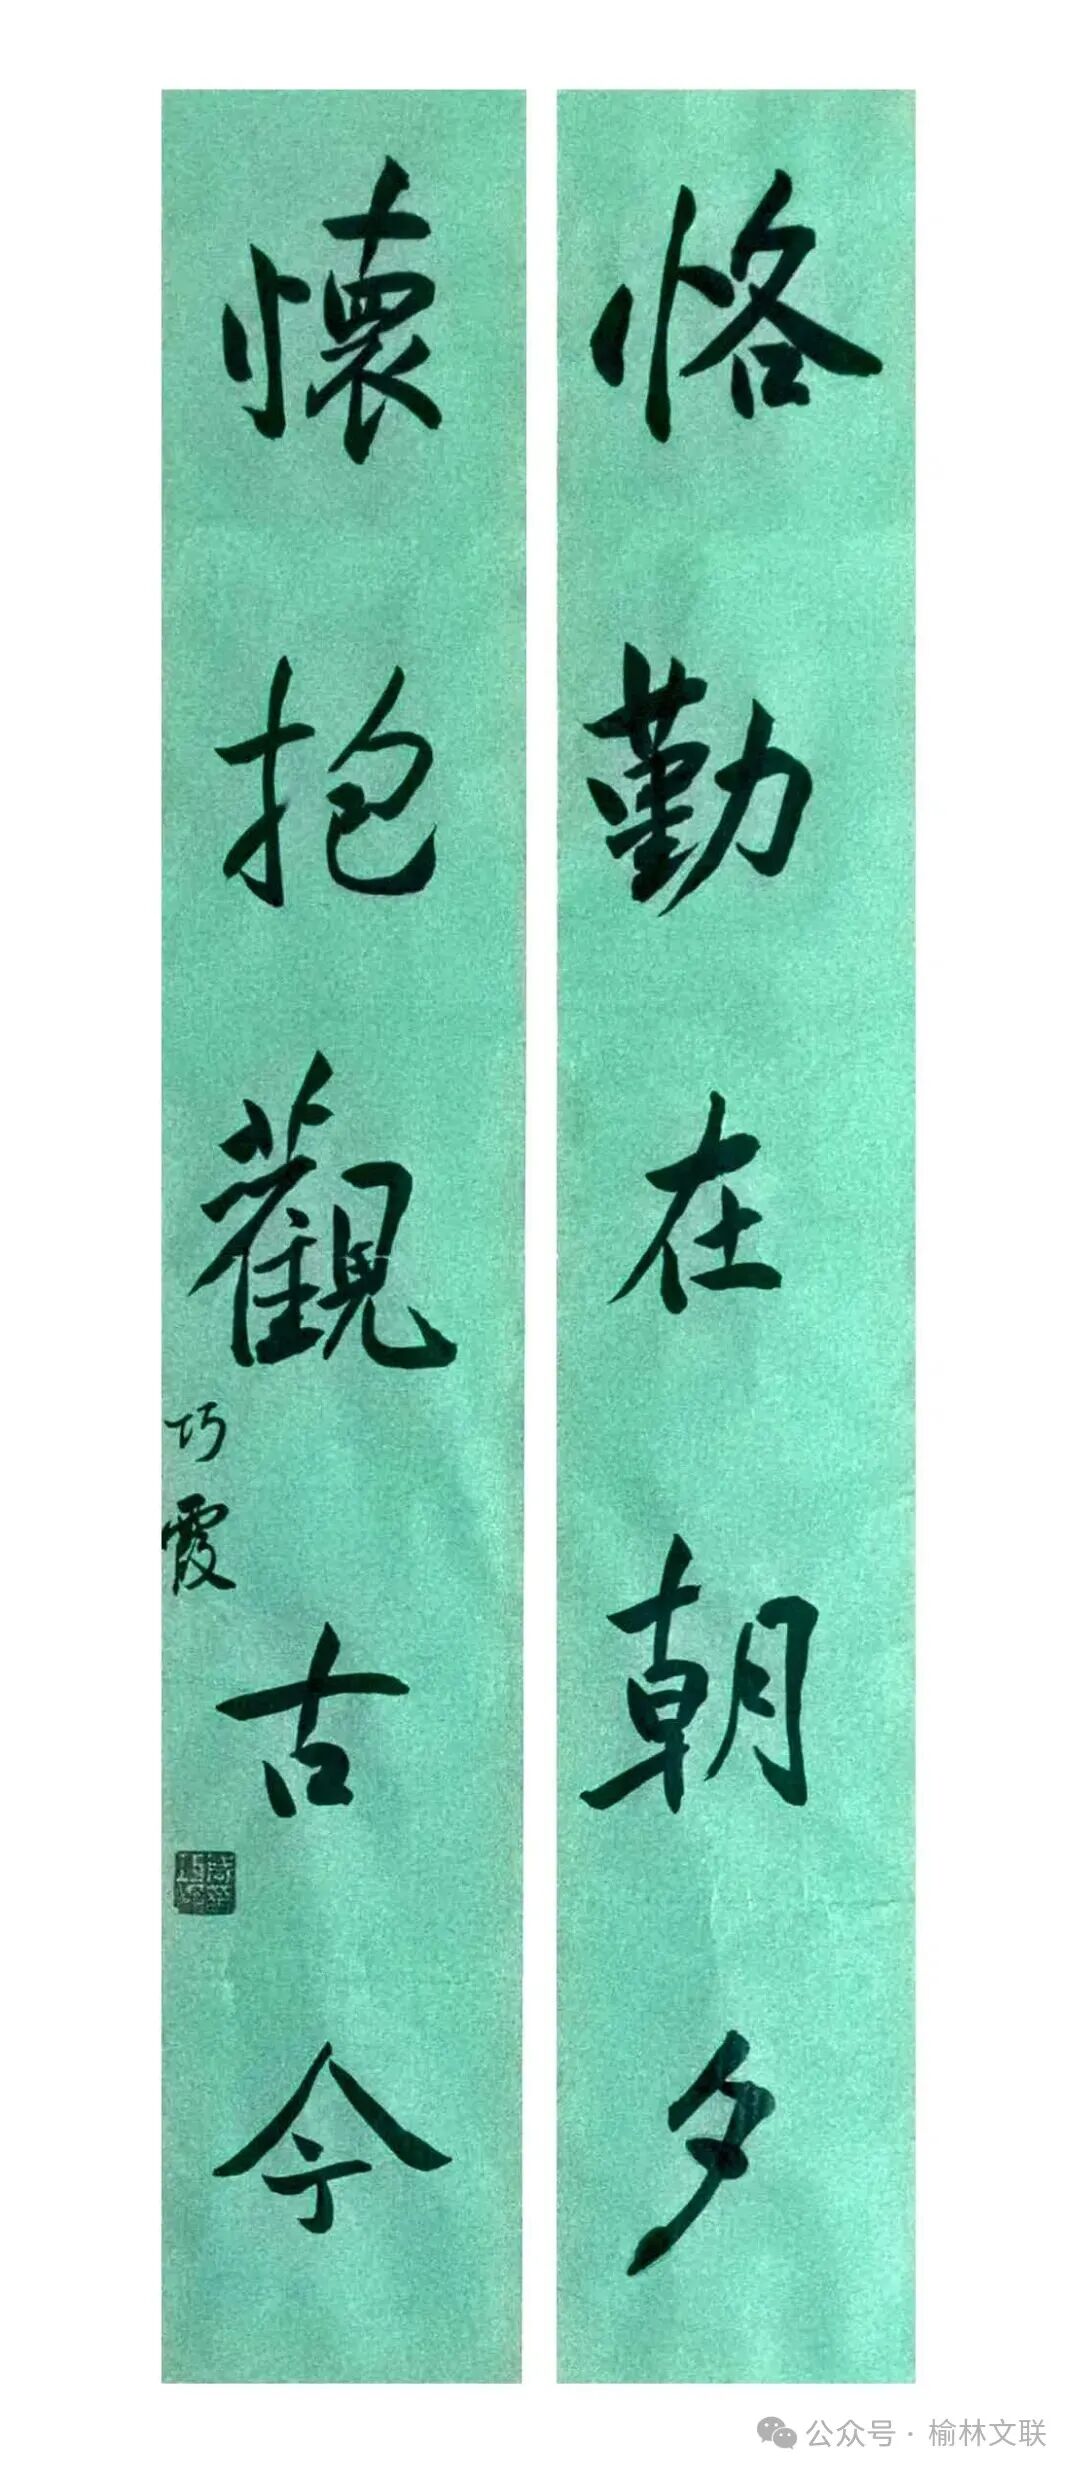 恪勤在朝夕
懷抱觀古今
巧霞
公众号·榆林文联